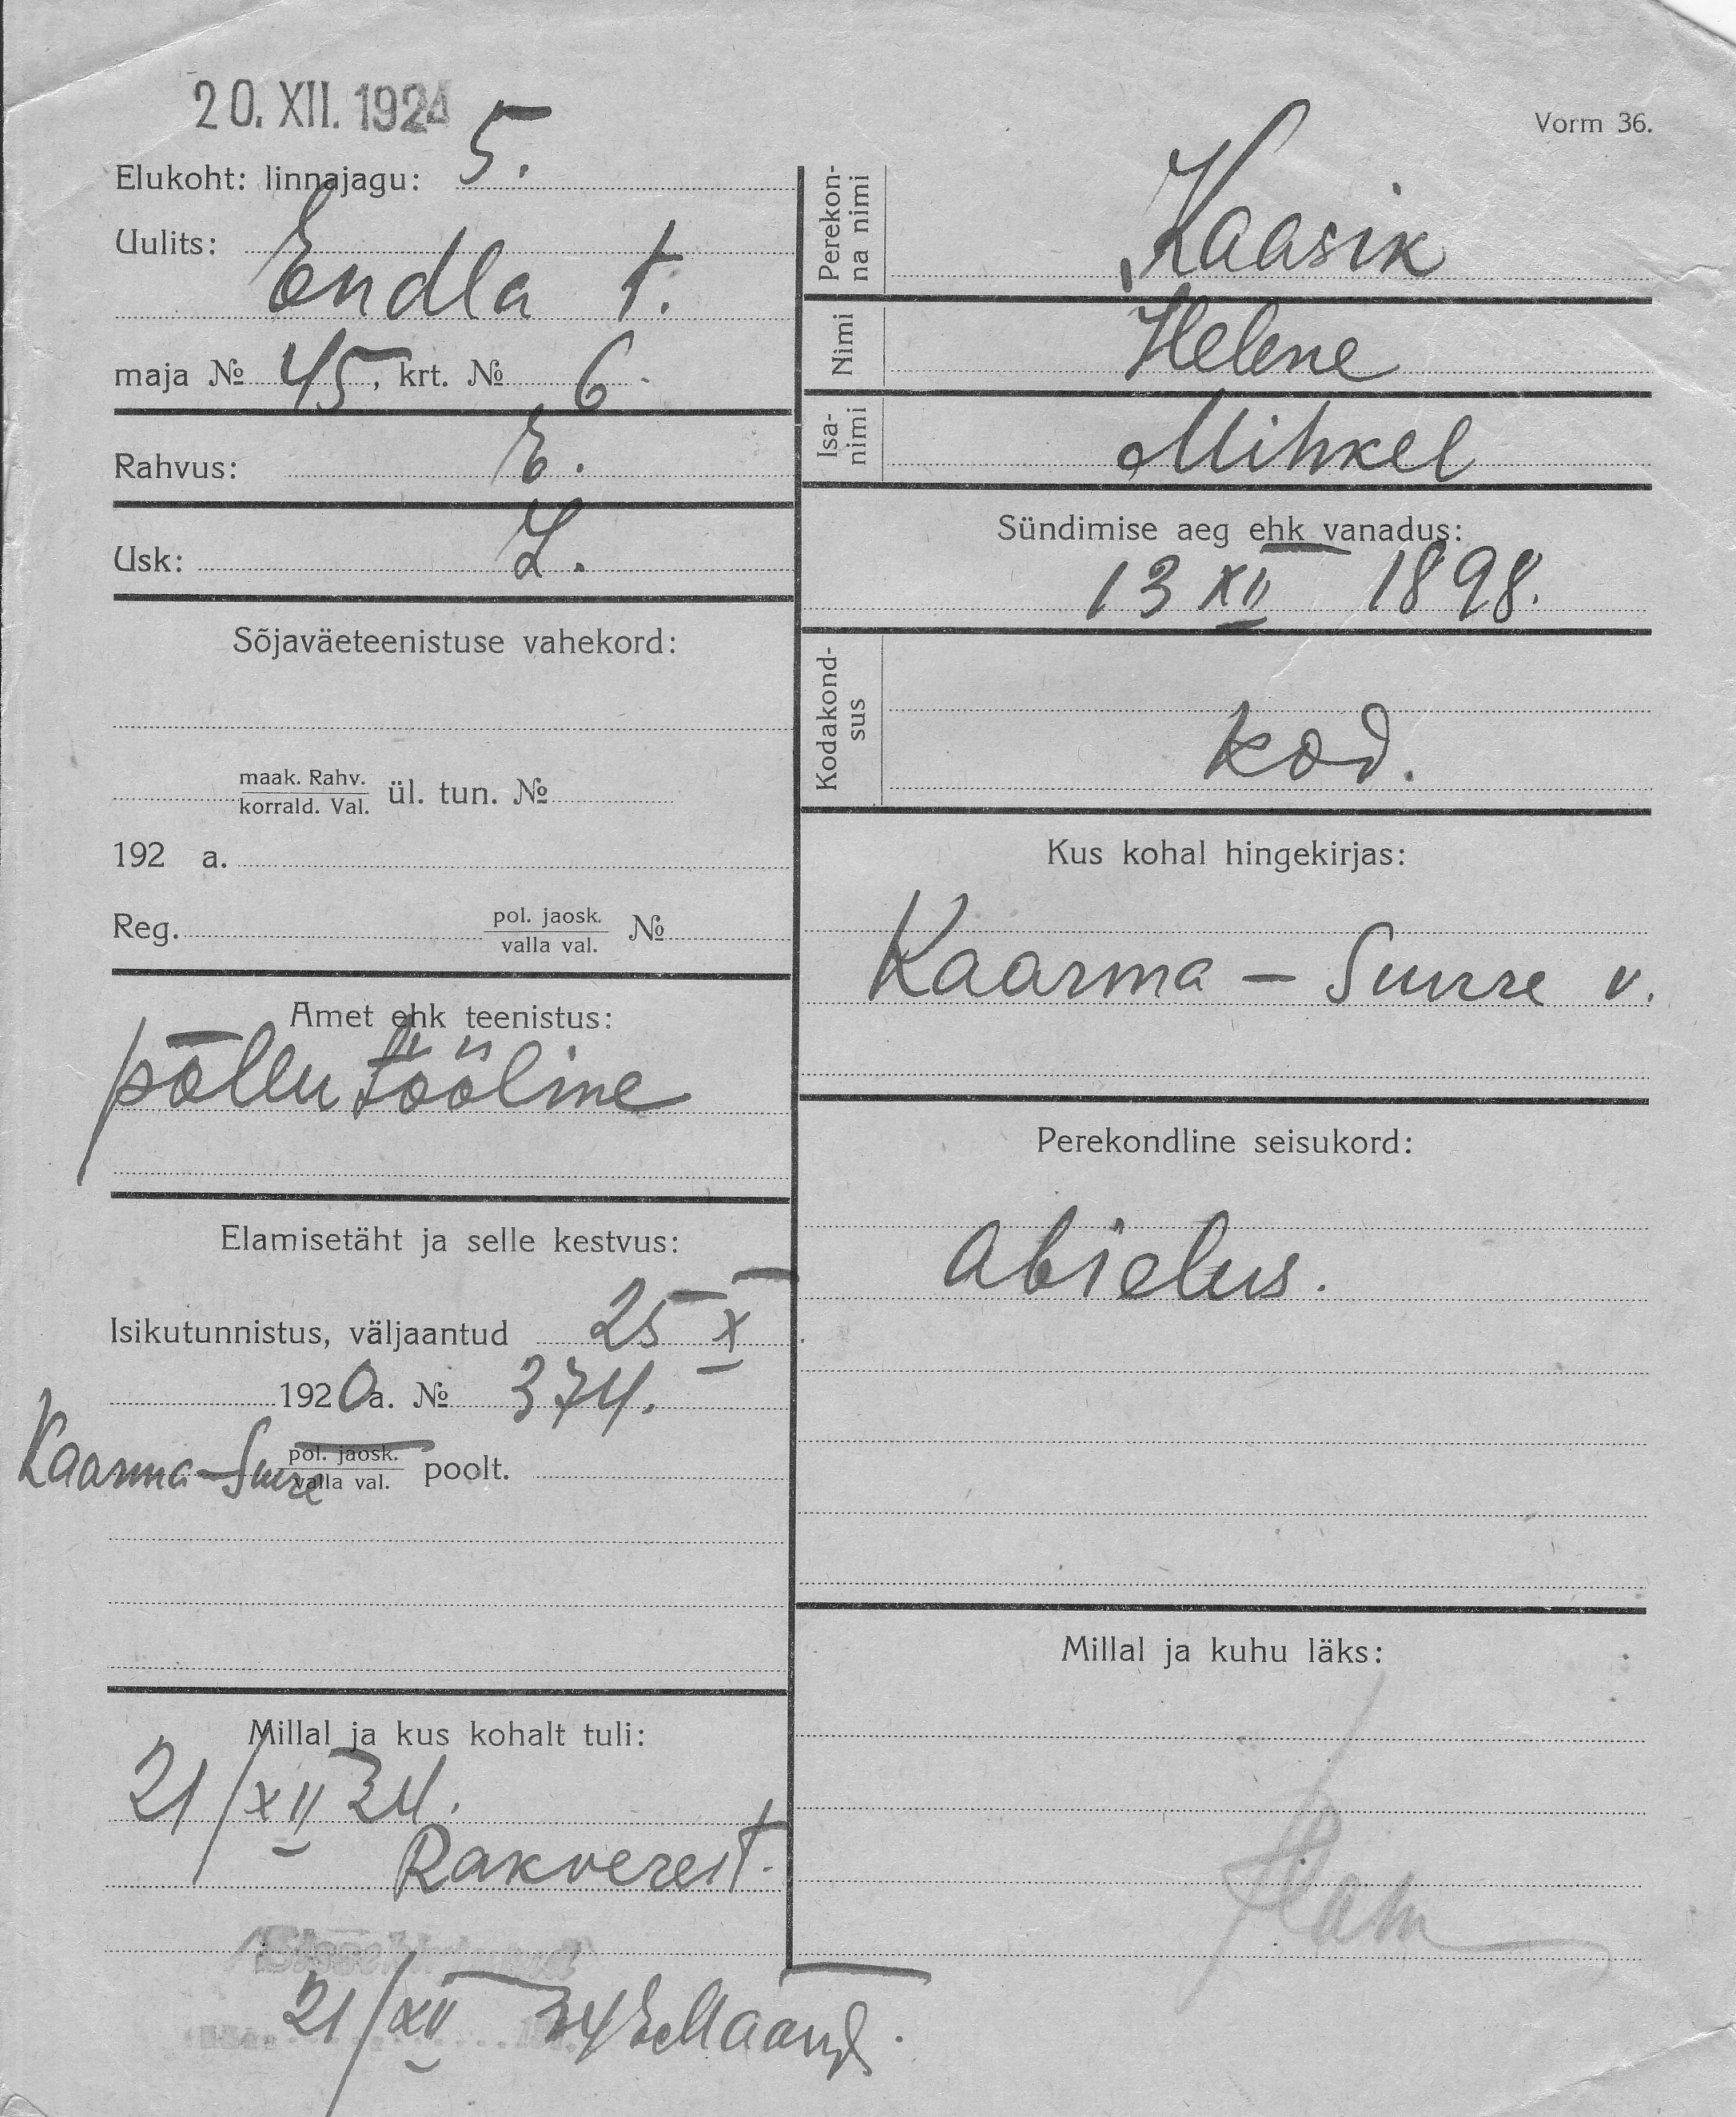 20. XII. 1924
Vorm 36.
Elukoht: linnajagu: 5.
Uulits: Endla t.
maja № 45, krt. № 6.
Rahvus: E.
Usk: L.
Sõjaväeteenistuse vahekord:
maak. Rahv.
korrald. Val. ül. tun. №
192 a.
Reg. pol. jaosk.
valla val. №
Amet ehk teenistus:
põllutööline
Elamisetäht ja selle kestvus:
Isikutunnistus, väljaantud 25 X
1920 a. № 374.
Kaarma-Suure pol. jaosk.
valla val. poolt.
Millal ja kus kohalt tuli:
21/XII 24.
Rakverest.
21/XII 24
Perekon-
na nimi Kaasik
Nimi Helene
Isa-
nimi Mihkel
Sündimise aeg ehk vanadus:
13 XII 1898.
Kodakond-
sus kod.
Kus kohal hingekirjas:
Kaarma - Suure v.
Perekondline seisukord:
abielus.
Millal ja kuhu läks: